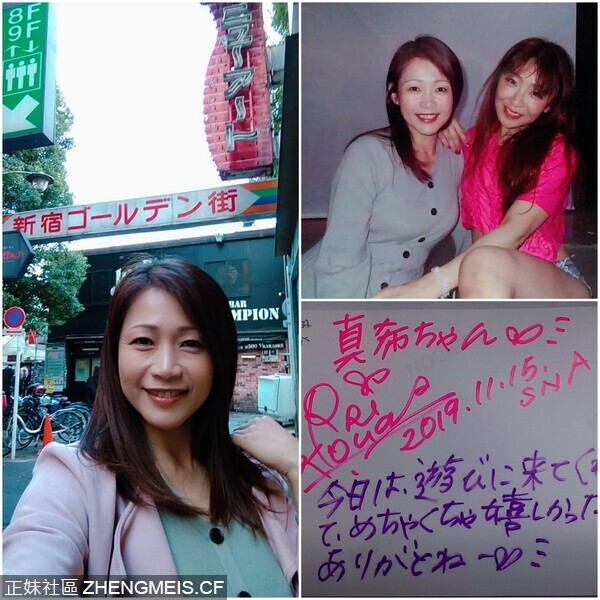 FF
89
ニューアート
新宿ゴールデン街
BAR
CHAMPION
真希ちゃん
2019.11.15.
SNA
今日は遊びに来てく
て、めちゃくちゃ嬉しかった
ありがとね
正妹社區 ZHENGMEIS.CF